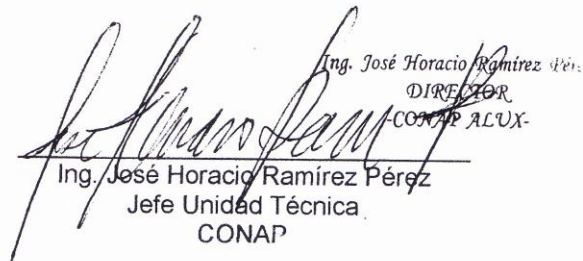 Ing. José Horacio Ramírez Pér
DIRECTOR
-CONAP ALUX-
José Horacio Ram P
Ing. José Horacio Ramírez Pérez
Jefe Unidad Técnica
CONAP